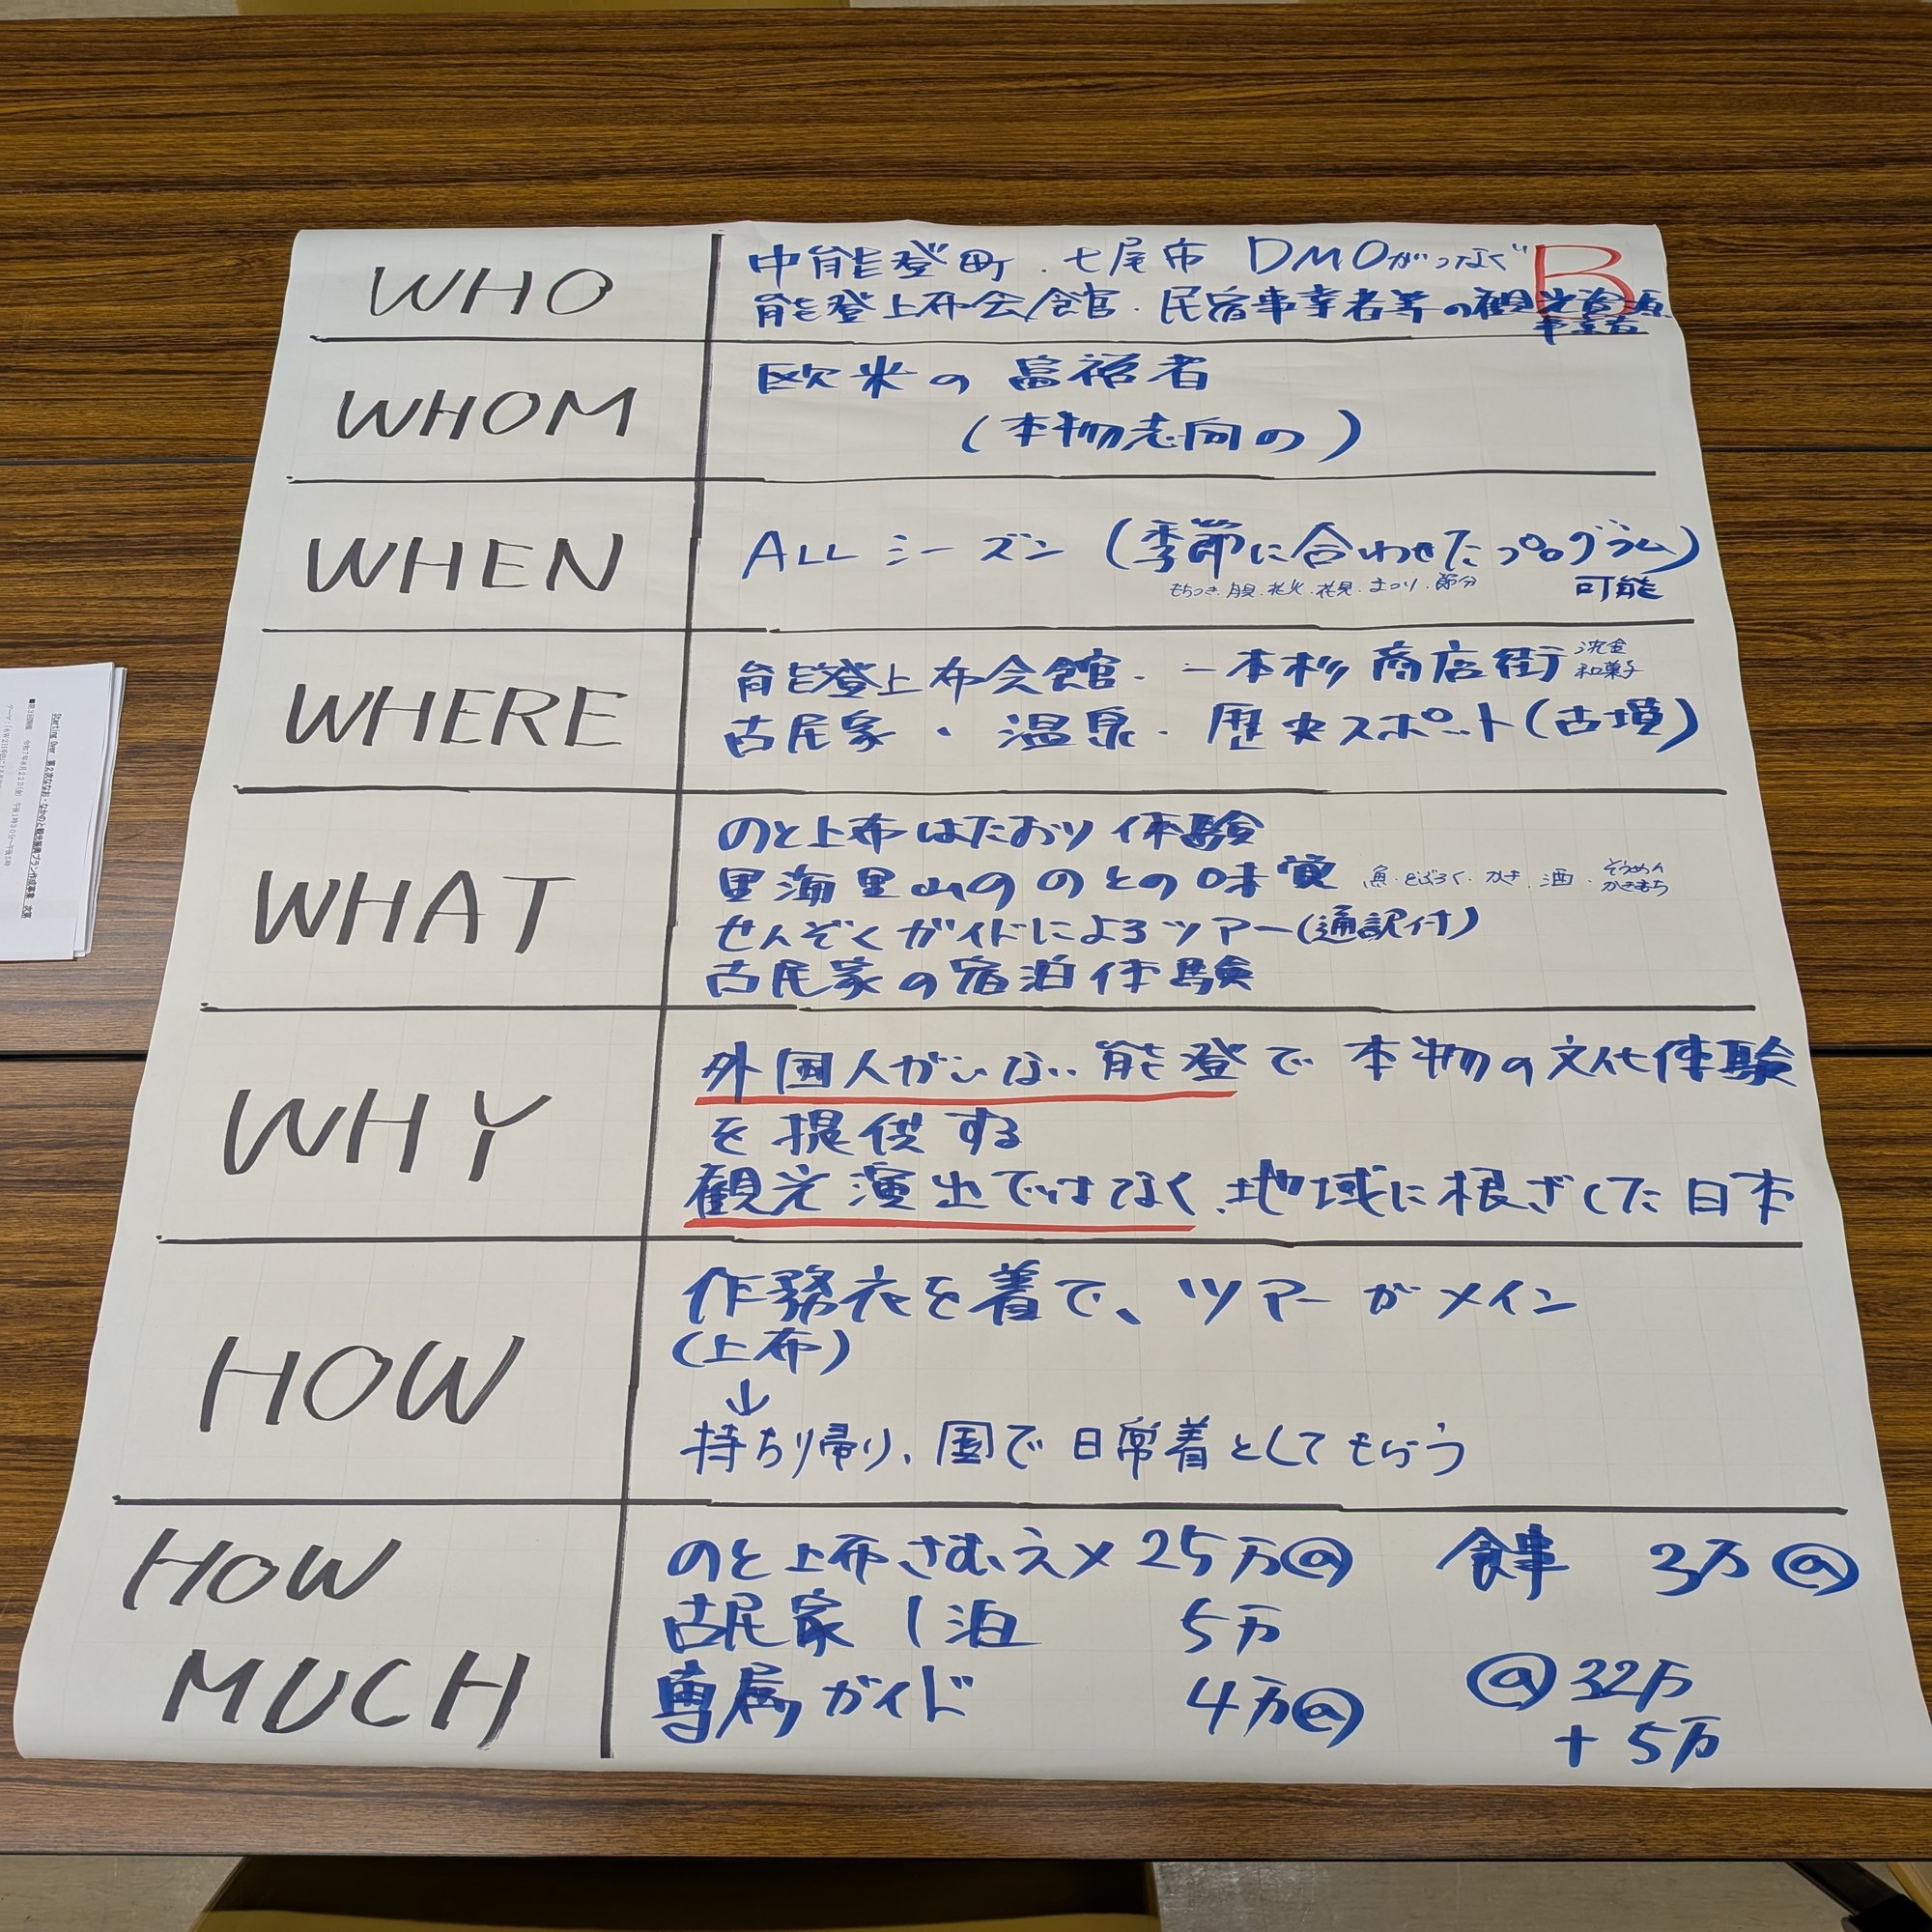 B
WHO
中能登町・七尾市 DMOがつなぐ
能登上布会館・民宿事業者等の観光資源
事業者
WHOM
欧米の富裕者
(本物志向の)
WHEN
ALL シーズン (季節に合わせたプログラム)
もちつき・月見・花火・花見・まつり・節分 可能
WHERE
能登上布会館・一本杉商店街
和菓子
古民家・温泉・歴史スポット(古墳)
WHAT
のと上布はたおり体験
里海里山ののとの味覚 魚・どぶろく・かき・酒・そうめん
かきもち
せんぞくガイドによるツアー(通訳付)
古民家の宿泊体験
WHY
外国人がいない能登で本物の文化体験
を提供する
観光演出ではなく、地域に根ざした日本
HOW
作務衣を着て、ツアーがメイン
(上布)
↓
持ち帰り、国で日常着としてもらう
HOW
MUCH
のと上布さむえ× 25万@ 食事 3万@
古民家 1泊 5万
専属ガイド 4万@
@32万
+5万
Starting Over 第2次ななお・なかのと観光振興プラン作成事業 次第